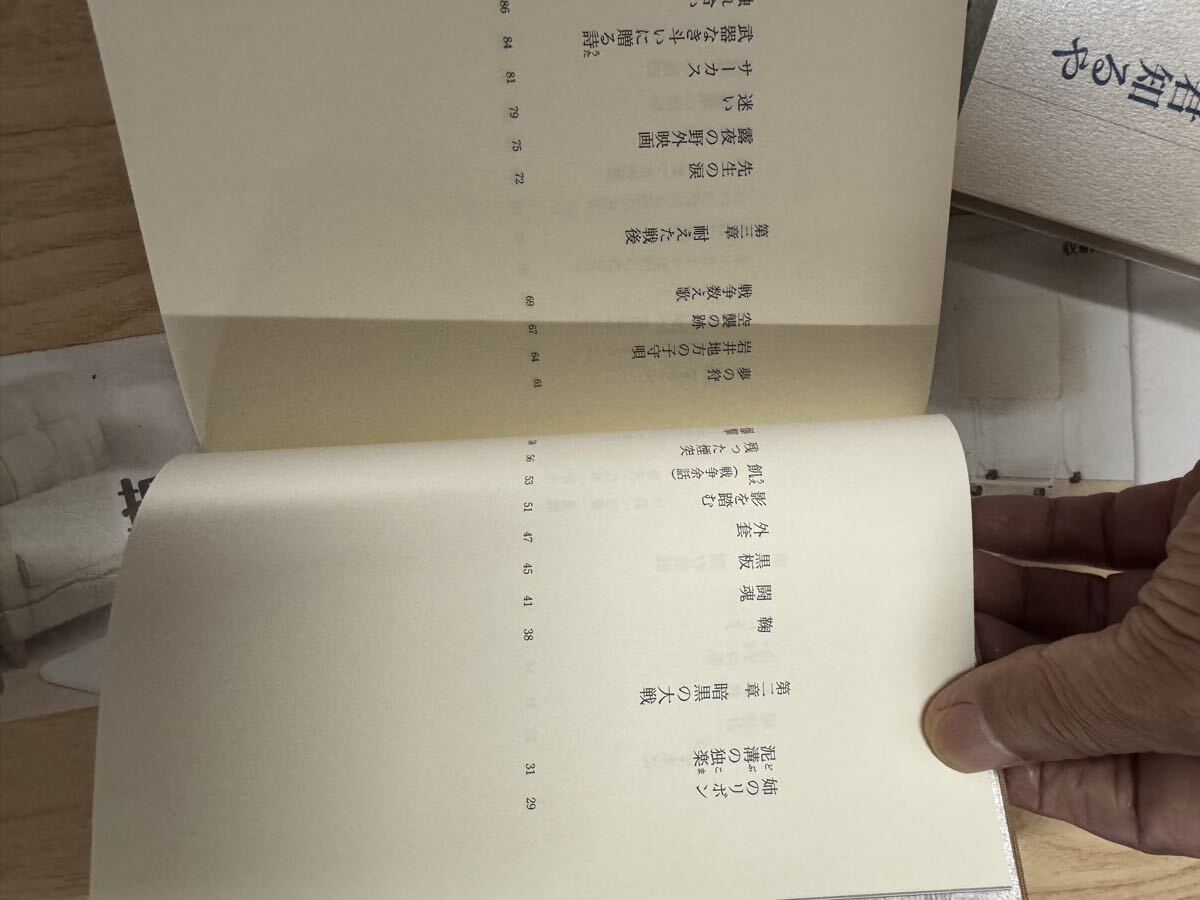 姉のリボン 29
泥溝の独楽 31
どぶ こま
第二章 暗黒の大戦
鞠 38
闘魂 41
黒板 45
外套 47
影を踏む 51
飢(戦争余話) 53
うえ
残った煙突 56
夢の狩 61
岩井地方の子守唄 64
空襲の跡 67
戦争数え歌 69
第三章 耐えた戦後
先生の涙 72
露夜の野外映画 75
迷い 79
サーカス 81
武器なき斗いに贈る詩 84
うた
86
君知るや